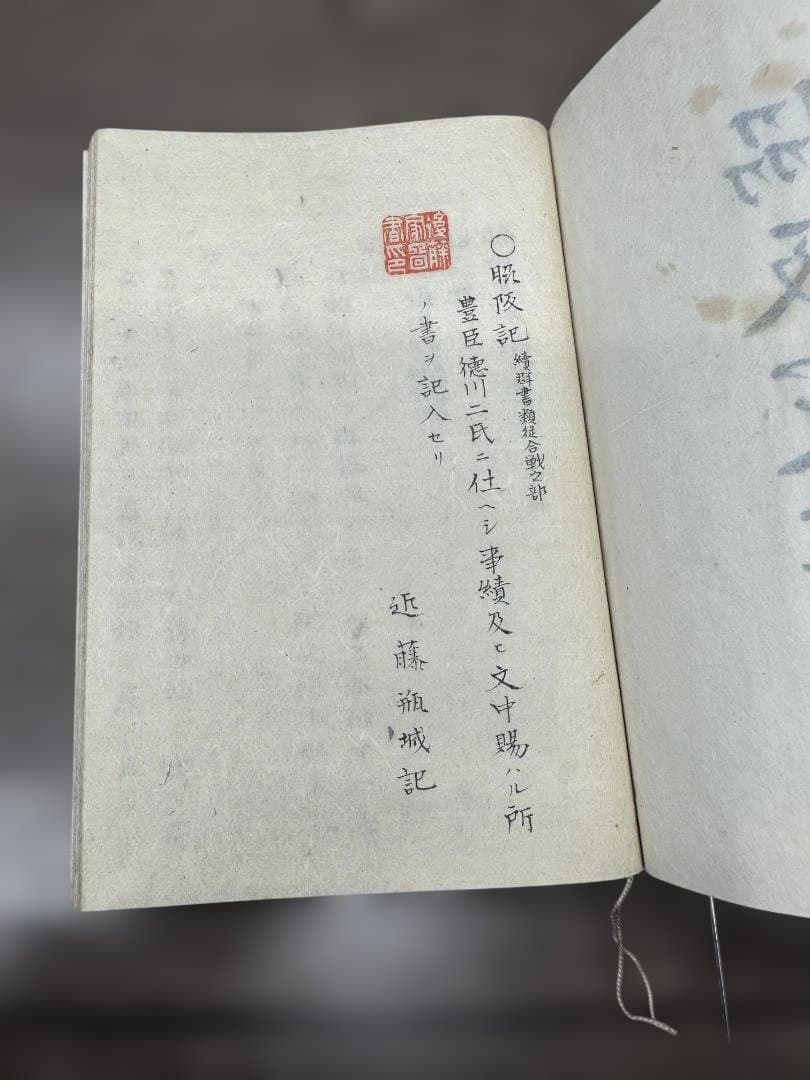 ○脇阪記 續群書類從合戰之部
豊臣德川二氏ニ仕ヘシ事績及ヒ文中賜ハル所
ノ書ヲ記入セリ
近藤瓶城記
後藤
家圖
書印